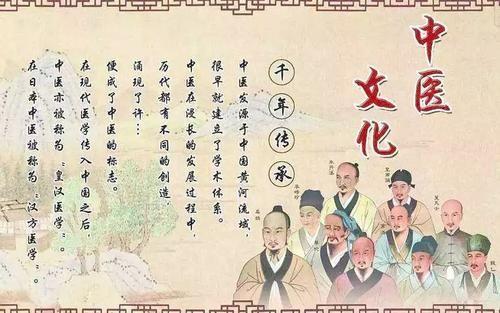 中医
文化
千年传承
中医发源于中国黄河流域，
很早就建立了学术体系。
中医在漫长的发展过程中，
历代都有不同的创造，
涌现了许…
便成了中医的标志。
在现代医学传入中国之后，
中医亦被称为“皇汉医学”。
在日本中医被称为“汉方医学”。